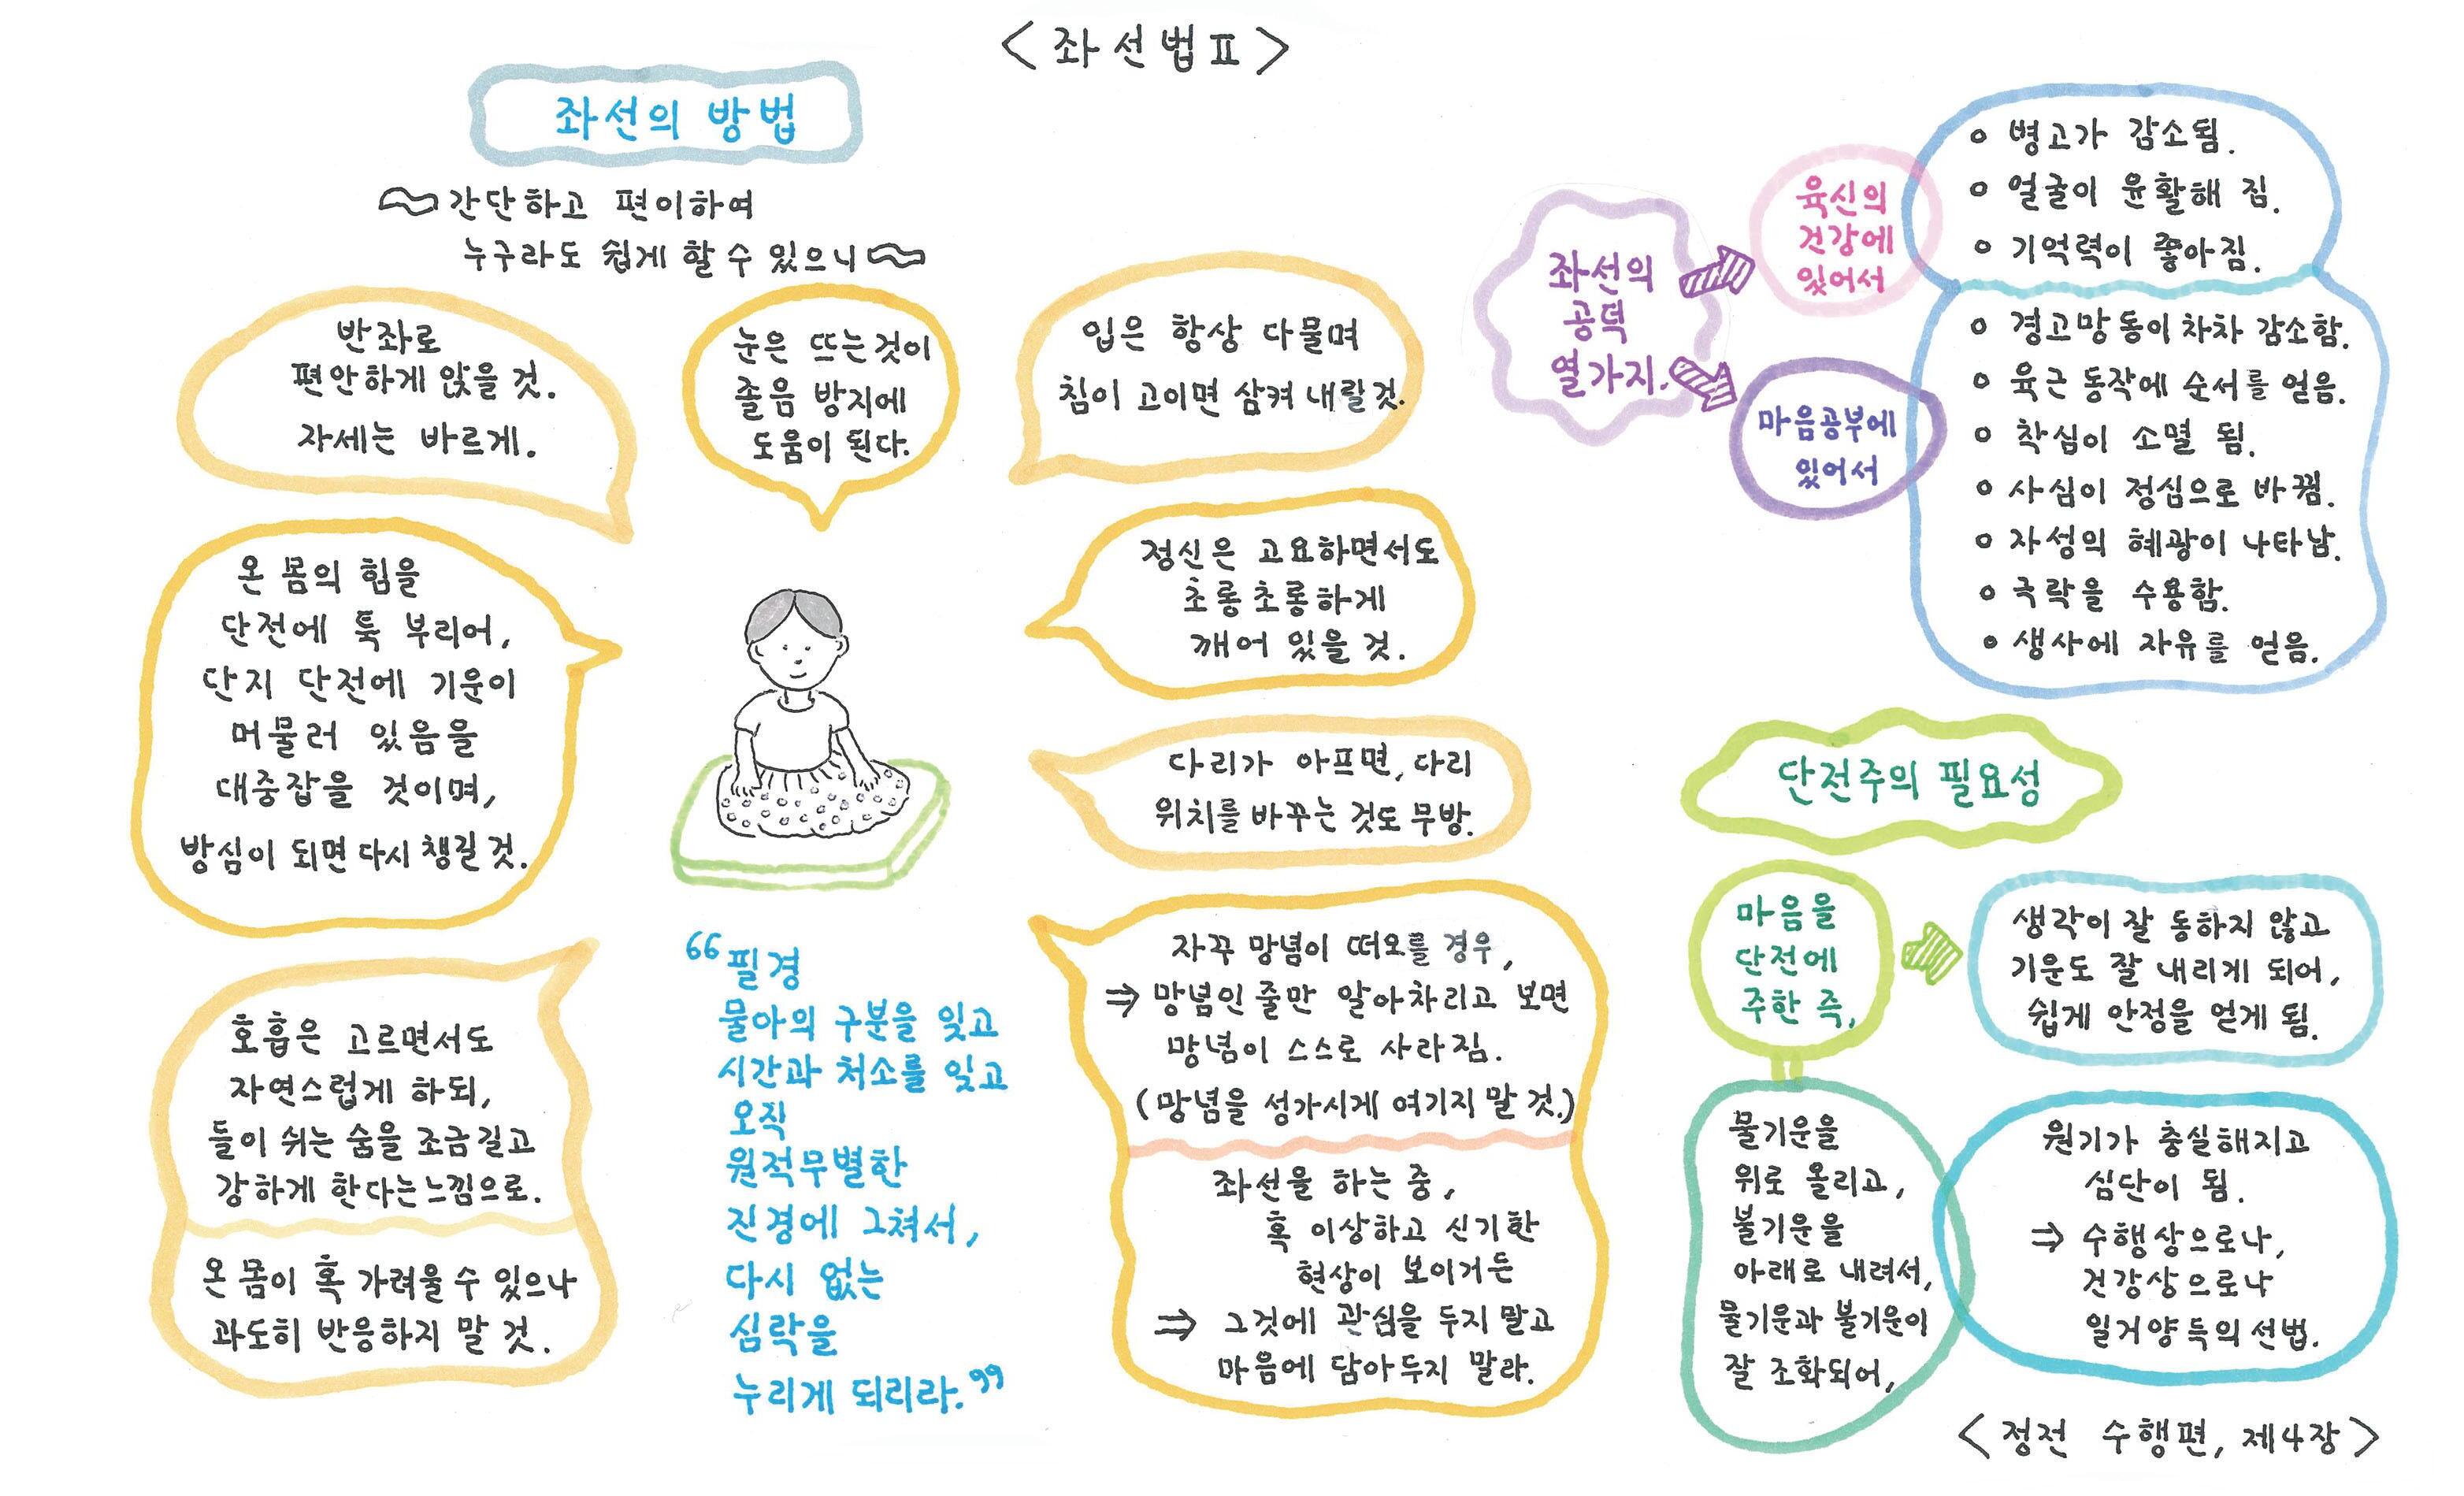 <좌선법Ⅱ>
좌선의 방법
간단하고 편이하여
누구라도 쉽게 할 수 있으니
반좌로
편안하게 앉을 것.
자세는 바르게.
눈은 뜨는 것이
졸음 방지에
도움이 된다.
입은 항상 다물며
침이 고이면 삼켜 내릴 것.
온 몸의 힘을
단전에 툭 부리어,
단지 단전에 기운이
머물러 있음을
대중잡을 것이며,
방심이 되면 다시 챙길 것.
정신은 고요하면서도
초롱초롱하게
깨어 있을 것.
다리가 아프면, 다리
위치를 바꾸는 것도 무방.
호흡은 고르면서도
자연스럽게 하되,
들이 쉬는 숨을 조금 길고
강하게 한다는 느낌으로.
온 몸이 혹 가려울 수 있으나
과도히 반응하지 말 것.
자꾸 망념이 떠오를 경우,
⇒ 망념인 줄만 알아차리고 보면
망념이 스스로 사라짐.
(망념을 성가시게 여기지 말 것.)
좌선을 하는 중,
혹 이상하고 신기한
현상이 보이거든
⇒ 그것에 관심을 두지 말고
마음에 담아두지 말라.
“필경
물아의 구분을 잊고
시간과 처소를 잊고
오직
원적무별한
진경에 그쳐서,
다시 없는
심락을
누리게 되리라.”
좌선의
공덕
열가지.
육신의
건강에
있어서
◦ 병고가 감소됨.
◦ 얼굴이 윤활해 짐.
◦ 기억력이 좋아짐.
마음공부에
있어서
◦ 경고망동이 차차 감소함.
◦ 육근 동작에 순서를 얻음.
◦ 착심이 소멸 됨.
◦ 사심이 정심으로 바뀜.
◦ 자성의 혜광이 나타남.
◦ 극락을 수용함.
◦ 생사에 자유를 얻음.
단전주의 필요성
마음을
단전에
주한 즉,
생각이 잘 동하지 않고
기운도 잘 내리게 되어,
쉽게 안정을 얻게 됨.
물기운을
위로 올리고,
불기운을
아래로 내려서,
물기운과 불기운이
잘 조화되어,
원기가 충실해지고
심단이 됨.
⇒ 수행상으로나,
건강상으로나
일거양득의 선법.
<정전 수행편, 제4장>